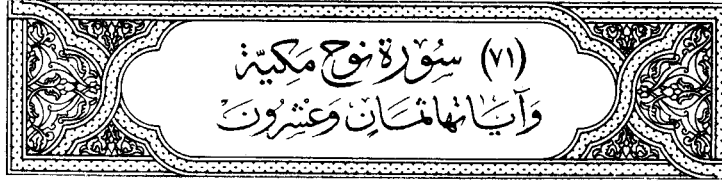 (٧١) سُورَة نُوحٍ مَكِيَّة
وَآيَاتُهَا ثَمَانٍ وَعِشْرُونَ